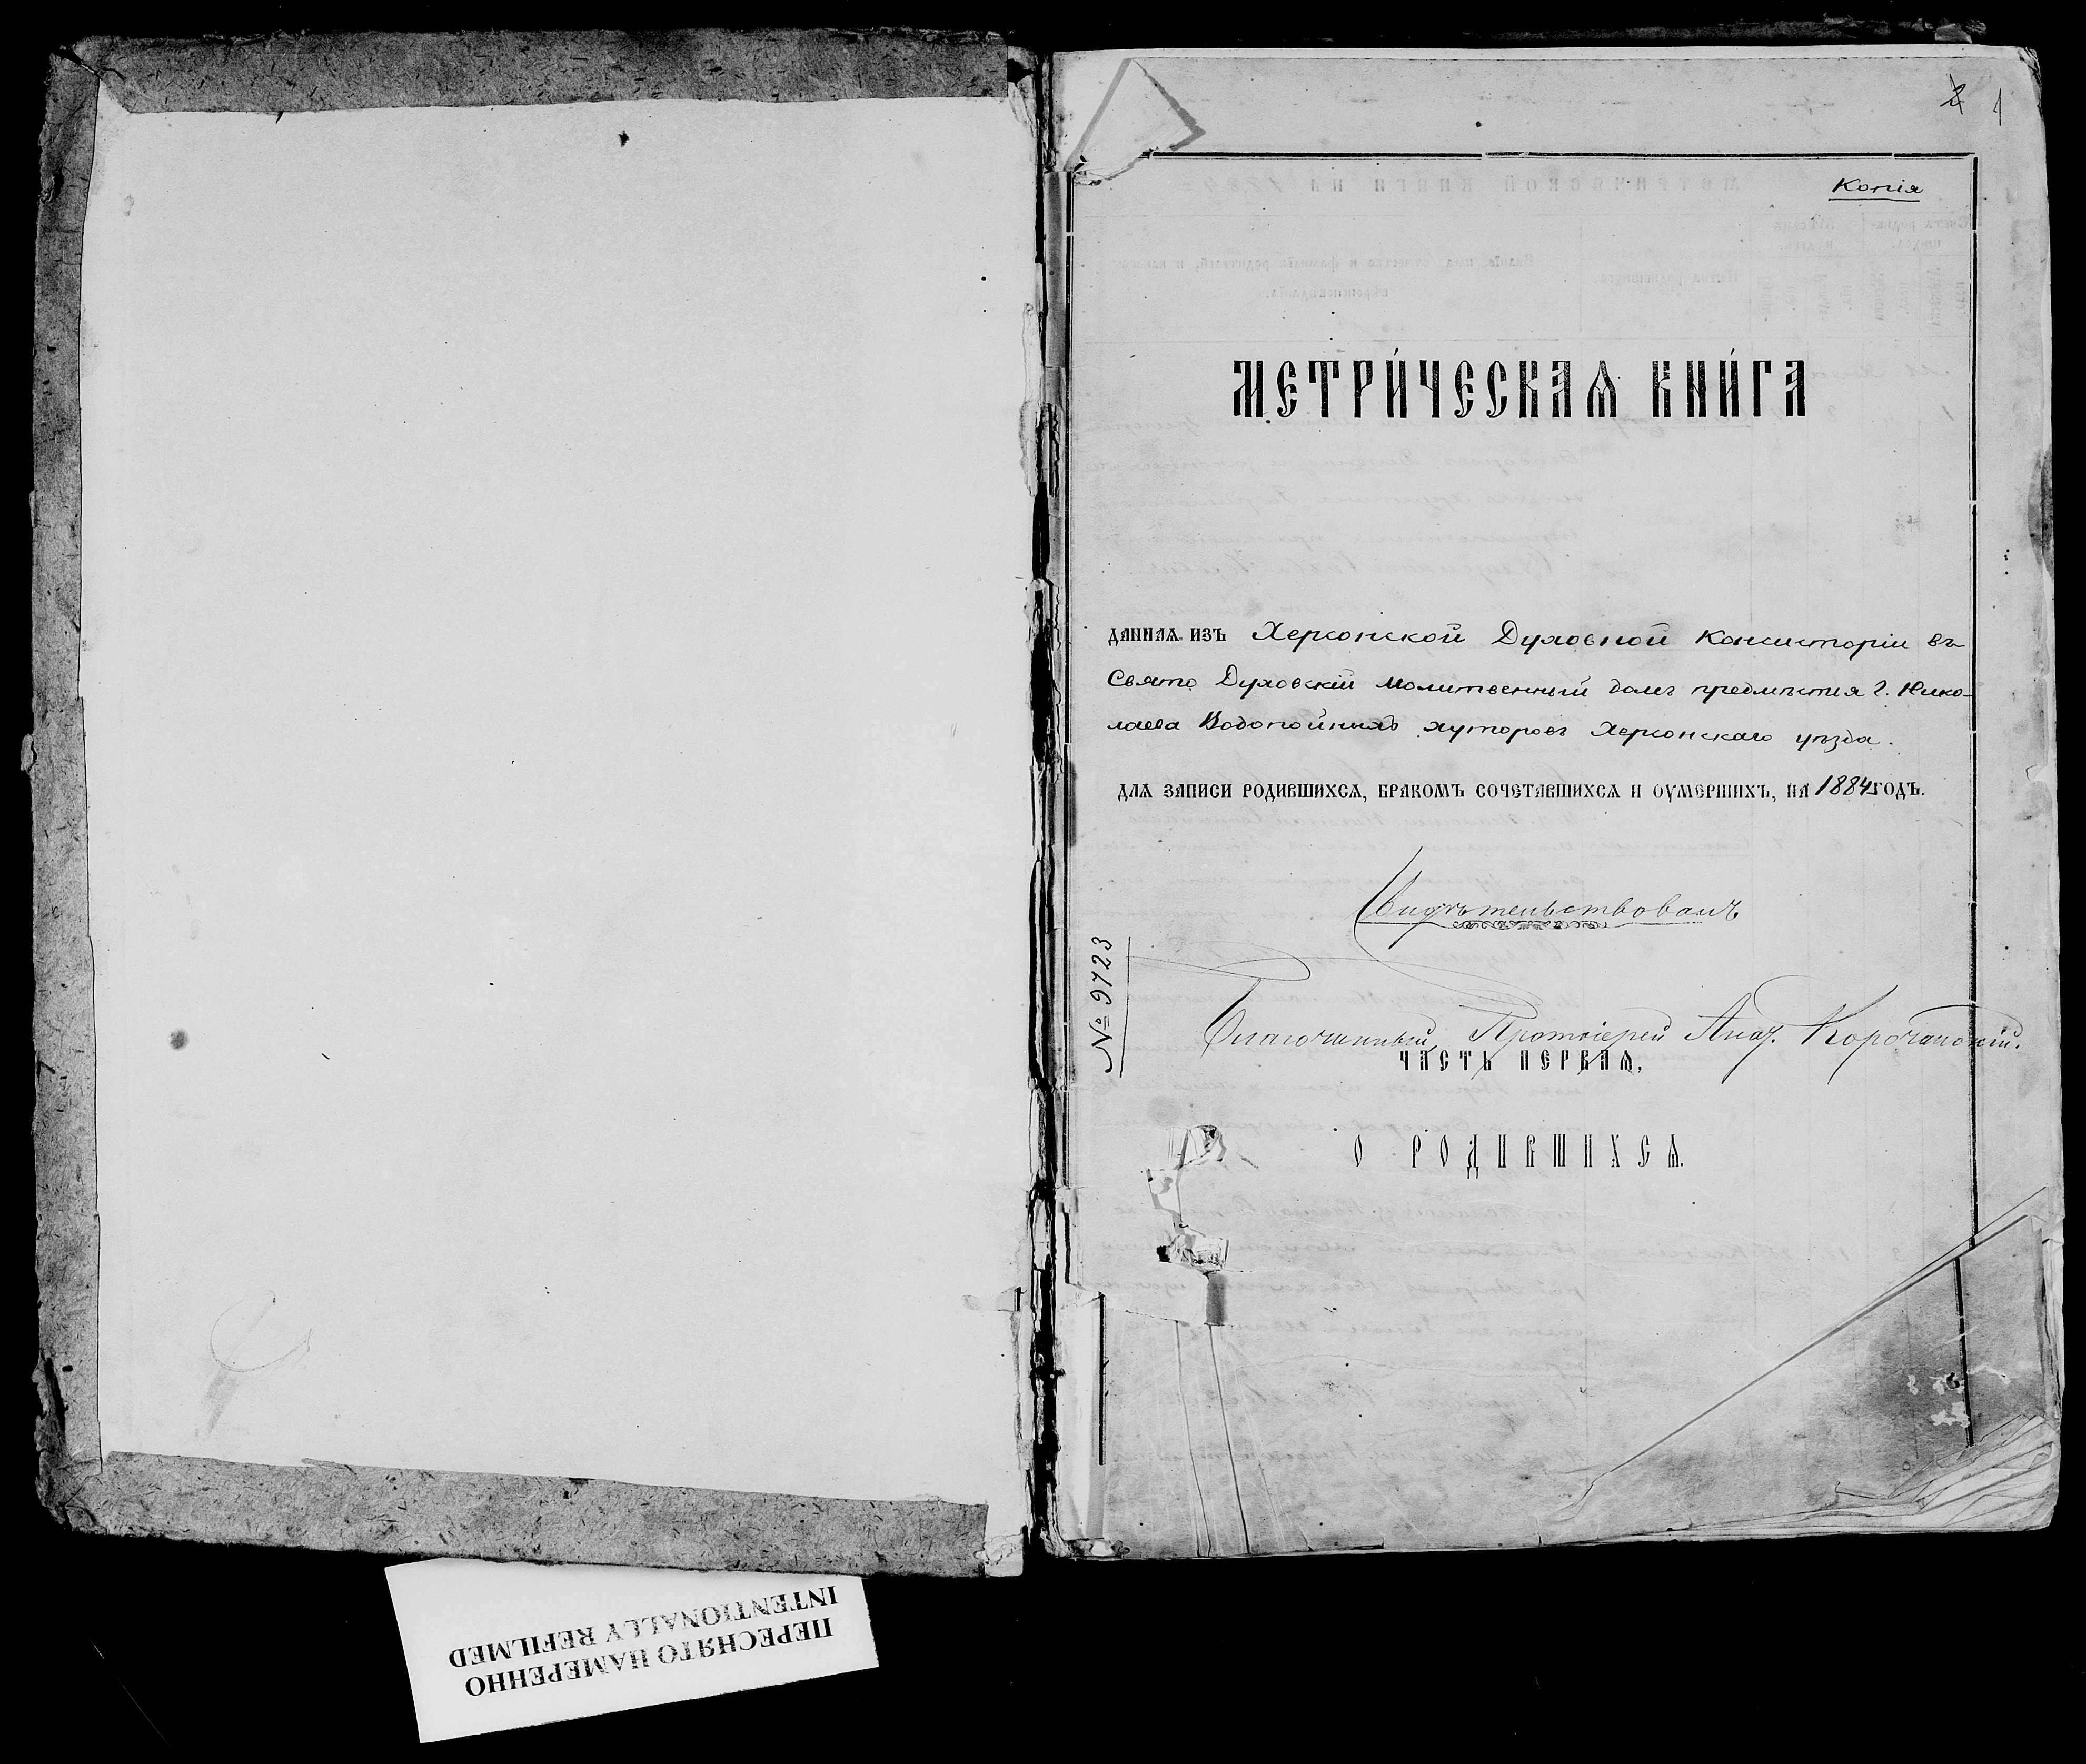 1
Копія
МЕТРИ́ЧЕСКАѦ КНИ́ГА
ДАННАѦ ИЗЪ Херсонской Духовной Консисторіи въ
Свято Духовскій молитвенный домъ предмѣстия г. Нико-
лаева Водопойныхъ хуторовъ Херсонскаго уѣзда.
ДЛѦ ЗАПИСИ РОДИВШИХСѦ, БРАКОМЪ СОЧЕТАВШИХСѦ И ОУМЕРШИХЪ, НА 1884 ГОДЪ.
Свидѣтельствовалъ
№ 9723
Благочинный, Протоіерей Анат. Корочанскій.
ЧАСТЬ ПЕРВАѦ,
О РОДИВШИХСѦ.
ПЕРЕСНЯТО НАМЕРЕННО
INTENTIONALLY REFILMED